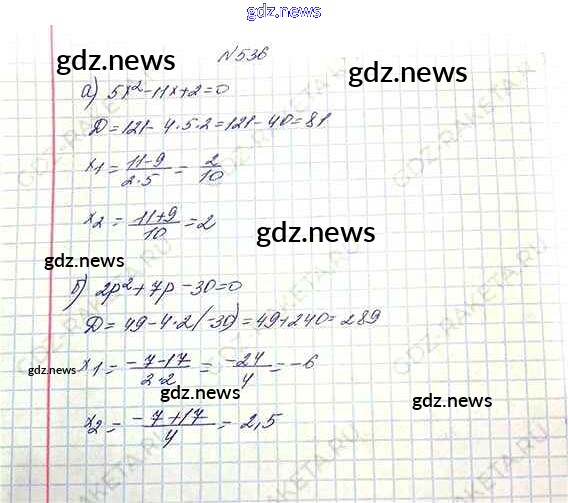 gdz.news
N536
gdz.news
gdz.news
а) 5x²-11x+2=0
D=121-4·5·2=121-40=81
x1 = 11-9 / 2·5 = 2 / 10
x2 = 11+9 / 10 = 2
gdz.news
gdz.news
б) 2p²+7p-30=0
D=49-4·2(-30)=49+240=289
x1 = -7-17 / 2·2 = -24 / 4 = -6
gdz.news
gdz.news
x2 = -7+17 / 4 = 2,5
GDZ-RAKETA.RU